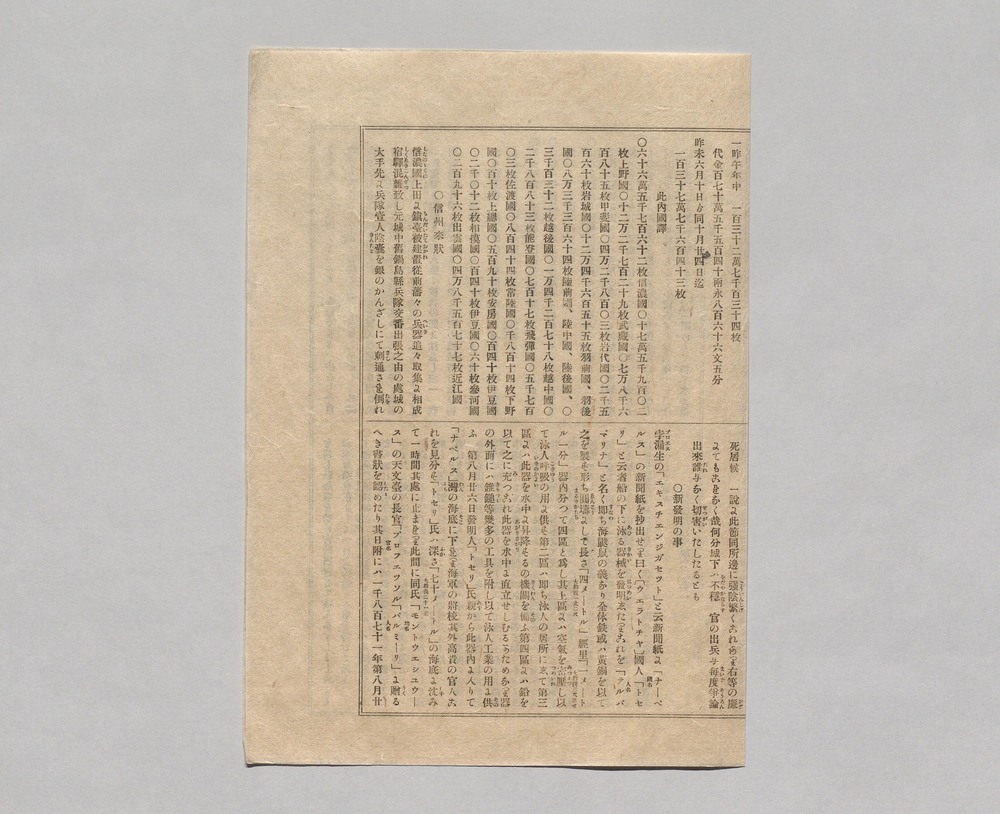 一昨午年中 一百三十二萬七千百三十四枚
代金百七十萬五千五百四十兩永八百六十六文五分
昨未六月十日ゟ同十月廿四日迄
一百三十七萬七千六百四十三枚
此內國譯
〇六十六萬五千七百六十二枚信濃國〇十七萬五千九百〇二
枚上野國〇十二万二千七百二十九枚武藏國〇七万八千六
百八十五枚甲斐國〇四万二千八百〇三枚岩代國〇二千五
百六十枚岩城國〇十二万四千六百五十五枚羽前國、羽後
國〇八万三千三百六十四枚陸前國、陸中國、陸後國、〇
三千百三十二枚越後國〇一万四千二百七十八枚越中國〇
二千八百八十三枚能登國〇七百十七枚飛彈國〇五千七百
〇三枚佐渡國〇八百四十四枚常陸國〇千八百十四枚下野
國〇百十枚上總國〇五百九十枚安房國〇百四十枚伊豆國
〇二千〇十二枚相摸國〇百四十枚伊豆國〇六十枚參河國
〇二百九十六枚出雲國〇四万八千五百七十七枚近江國
〇信州來狀
信濃國上田ゟ鎭臺被建置從前藩々の兵器追々取集ゟ相成
宿驛混雜致し元城中舊鍋島縣兵隊交番出張之由の處城の
大手先ゟ兵隊壹人陰囊を銀のかんざしにて刺通され倒れ
死居候 一說ゟ此節同所邊に强陰繁くこれあり右等の廉
ゟてもこれなく哉何分城下ハ不穩 官の出兵与每度爭論
出來誰与なく切害いたしたるとも
〇新發明の事
孛漏生の「エキスチエンジガセツト」と云新聞紙ゟ「ナーペ
ルス」の新聞紙を抄出せり曰く「ウエラトチヤ」國人「トセ
リ」と云者船の下に泳る器械を發明したりこれを「タルパ
マリナ」と名く卽ち海鼴鼠の義なり全体鉄或ハ黃銅を以て
之を製す形ち圓壔ゟして長さ「四メートル」經里「一メート
ル一分」器內分つて四區と爲し其上區ゟハ空氣を壓し以
て泳人呼吸の用ゟ供す第二區ハ卽ち泳人の居所にして第三
區ゟハ此器を水中ゟ昇降するの機關を備ふ第四區ゟハ鉛を
以て之に充つこれ此器を水中ゟ直立せしむるためなり器
の外面にハ錐鎚等幾多の工具を附し以て泳人工業の用ゟ供
ふ 第八月廿六日發明人「トセリ」氏親から此器內ゟ入りて
「ナペルス」灣の海底に下る海軍の將校其外高貴の官人こ
れを見分す「トセリ」氏ハ深さ「七十メートル」の海底ゟ沈み
て一時間其處に止まれり此間に同氏「モントウエシユウー
ス」の天文臺の長官「プロフエツソル」「パルミーリ」ゟ贈る
へき書狀を認めたり其日附にハ一千八百七十一年第八月廿